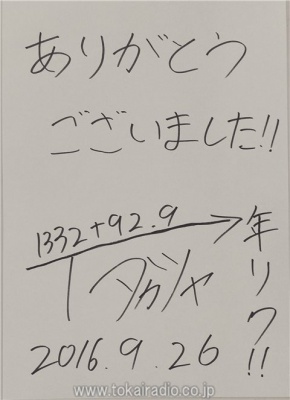 ありがとう
ございました!!
1332+92.9
年リワ!!
タカシャ
2016.9.26
www.tokairadio.co.jp